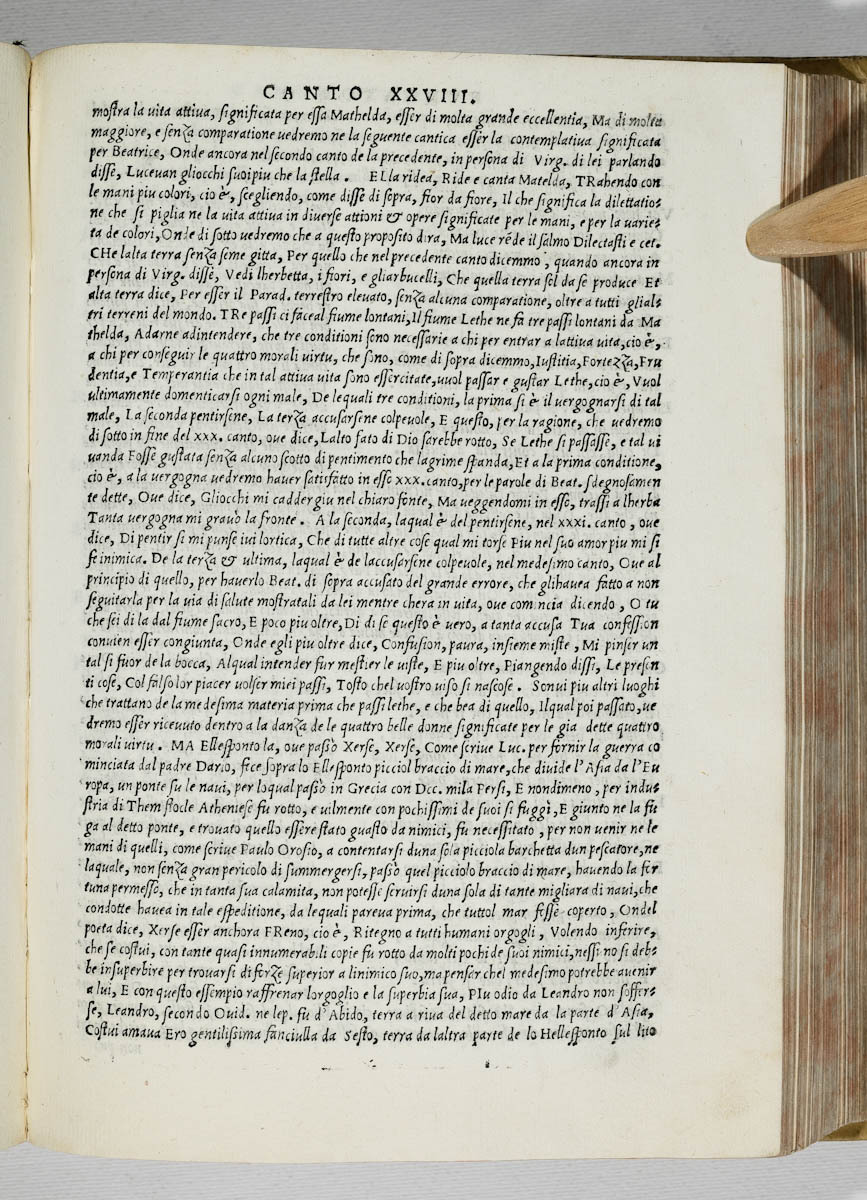 CANTO XXVIII.
mostra la uita attiua, significata per essa Mathelda, esser di molta grande eccellentia, Ma di molta
maggiore, e senza comparatione uedremo ne la seguente cantica esser la contemplatiua significata
per Beatrice, Onde ancora nel secondo canto de la precedente, in persona di Virg. di lei parlando
disse, Luceuan gliocchi suoi piu che la stella. ELla ridea, Ride e canta Matelda, TRahendo con
le mani piu colori, cio è, scegliendo, come disse di sopra, fior da fiore, Il che significa la dilettatio=
ne che si piglia ne la uita attiua in diuerse attioni & opere significate per le mani, e per la uarie=
ta de colori, Onde di sotto uedremo che a questo proposito dira, Ma luce rēde il salmo Dilectasti e cet.
CHe lalta terra senza seme gitta, Per quello che nel precedente canto dicemmo, quando ancora in
persona di Virg. disse, Vedi lherbetta, i fiori, e gliarbucelli, Che quella terra sol da se produce Et
alta terra dice, Per esser il Parad. terrestro eleuato, senza alcuna comparatione, oltre a tutti glial=
tri terreni del mondo. TRe passi ci facea l fiume lontani, Il fiume Lethe ne fa tre passi lontani da Ma
thelda, Adarne adintendere, che tre conditioni sono necessarie a chi per entrar a lattiua uita, cio è,
a chi per conseguir le quattro morali uirtu, che sono, come di sopra dicemmo, Iustitia, Fortezza, Pru
dentia, e Temperantia che in tal attiua uita sono essercitate, uuol passar e gustar Lethe, cio è, Vuol
ultimamente domenticarsi ogni male, De lequali tre conditioni, la prima si è il uergognarsi di tal
male, La seconda pentirsene, La terza accusarsene colpeuole, E questo, per la ragione, che uedremo
di sotto in fine del xxx. canto, oue dice, Lalto fato di Dio sarebbe rotto, Se Lethe si passasse, e tal ui
uanda Fosse gustata senza alcuno scotto di pentimento che lagrime spanda, Et a la prima conditione,
cio è, a la uergogna uedremo hauer satisfatto in esso xxx. canto, per le parole di Beat. sdegnosamen
te dette, Oue dice, Gliocchi mi cadder giu nel chiaro fonte, Ma ueggendomi in esso, trassi a lherba
Tanta uergogna mi grauò la fronte. A la seconda, laqual è del pentirsene, nel xxxi. canto, oue
dice, Di pentir si mi punse iui lortica, Che di tutte altre cose qual mi torse Piu nel suo amor piu mi si
fe inimica. De la terza & ultima, laqual è de laccusarsene colpeuole, nel medesimo canto, Oue al
principio di quello, per hauerlo Beat. di sopra accusato del grande errore, che glihauea fatto a non
seguitarla per la uia di salute mostratali da lei mentre chera in uita, oue comincia dicendo, O tu
che sei di la dal fiume sacro, E poco piu oltre, Di di se questo è uero, a tanta accusa Tua confession
conuien esser congiunta, Onde egli piu oltre dice, Confusion, paura, insieme miste, Mi pinser un
tal si fuor de la bocca, Alqual intender fur mestier le uiste, E piu oltre, Piangendo dissi, Le presen
ti cose, Col falso lor piacer uolser miei passi, Tosto chel uostro uiso si nascose. Sonui piu altri luoghi
che trattano de la medesima materia prima che passi lethe, e che bea di quello, Ilqual poi passato, ue
dremo esser riceuuto dentro a la danza de le quattro belle donne significate per le gia dette quattro
morali uirtu. MA Ellesponto la, oue passò Xerse, Xerse, Come scriue Luc. per fornir la guerra co
minciata dal padre Dario, fece sopra lo Ellesponto picciol braccio di mare, che diuide l'Asia da l'Eu
ropa, un ponte su le naui, per loqual passò in Grecia con Dcc. mila Persi, E nondimeno, per indus
stria di Themistocle Atheniese fu rotto, e uilmente con pochissimi de suoi si fuggì, E giunto ne la fu
ga al detto ponte, e trouato quello essere stato guasto da nimici, fu necessitato, per non uenir ne le
mani di quelli, come scriue Paulo Orosio, a contentarsi duna sola picciola barchetta dun pescatore, ne
laquale, non senza gran pericolo di summergersi, passò quel picciolo braccio di mare, hauendo la for
tuna permesso, che in tanta sua calamita, non potesse seruirsi duna sola di tante migliara di naui, che
condotte hauea in tale espeditione, da lequali pareua prima, che tuttol mar fosse coperto, Ondel
poeta dice, Xerse esser anchora FReno, cio è, Ritegno a tutti humani orgogli, Volendo inferire,
che se costui, con tante quasi innumerabili copie fu rotto da molti pochi de suoi nimici, nessuno si deb=
be insuperbire per trouarsi di forze superior a linimico suo, ma penser chel medesimo potrebbe auenir
a lui, E con questo essempio raffrenar lorgoglio e la superbia sua, PIu odio da Leandro non soffer=
se, Leandro, secondo Ouid. ne lep. fu d'Abido, terra a riua del detto mare da la parte d'Asia,
Costui amaua Ero gentilissima fanciulla da Sesto, terra da laltra parte de lo Hellesponto sul lito